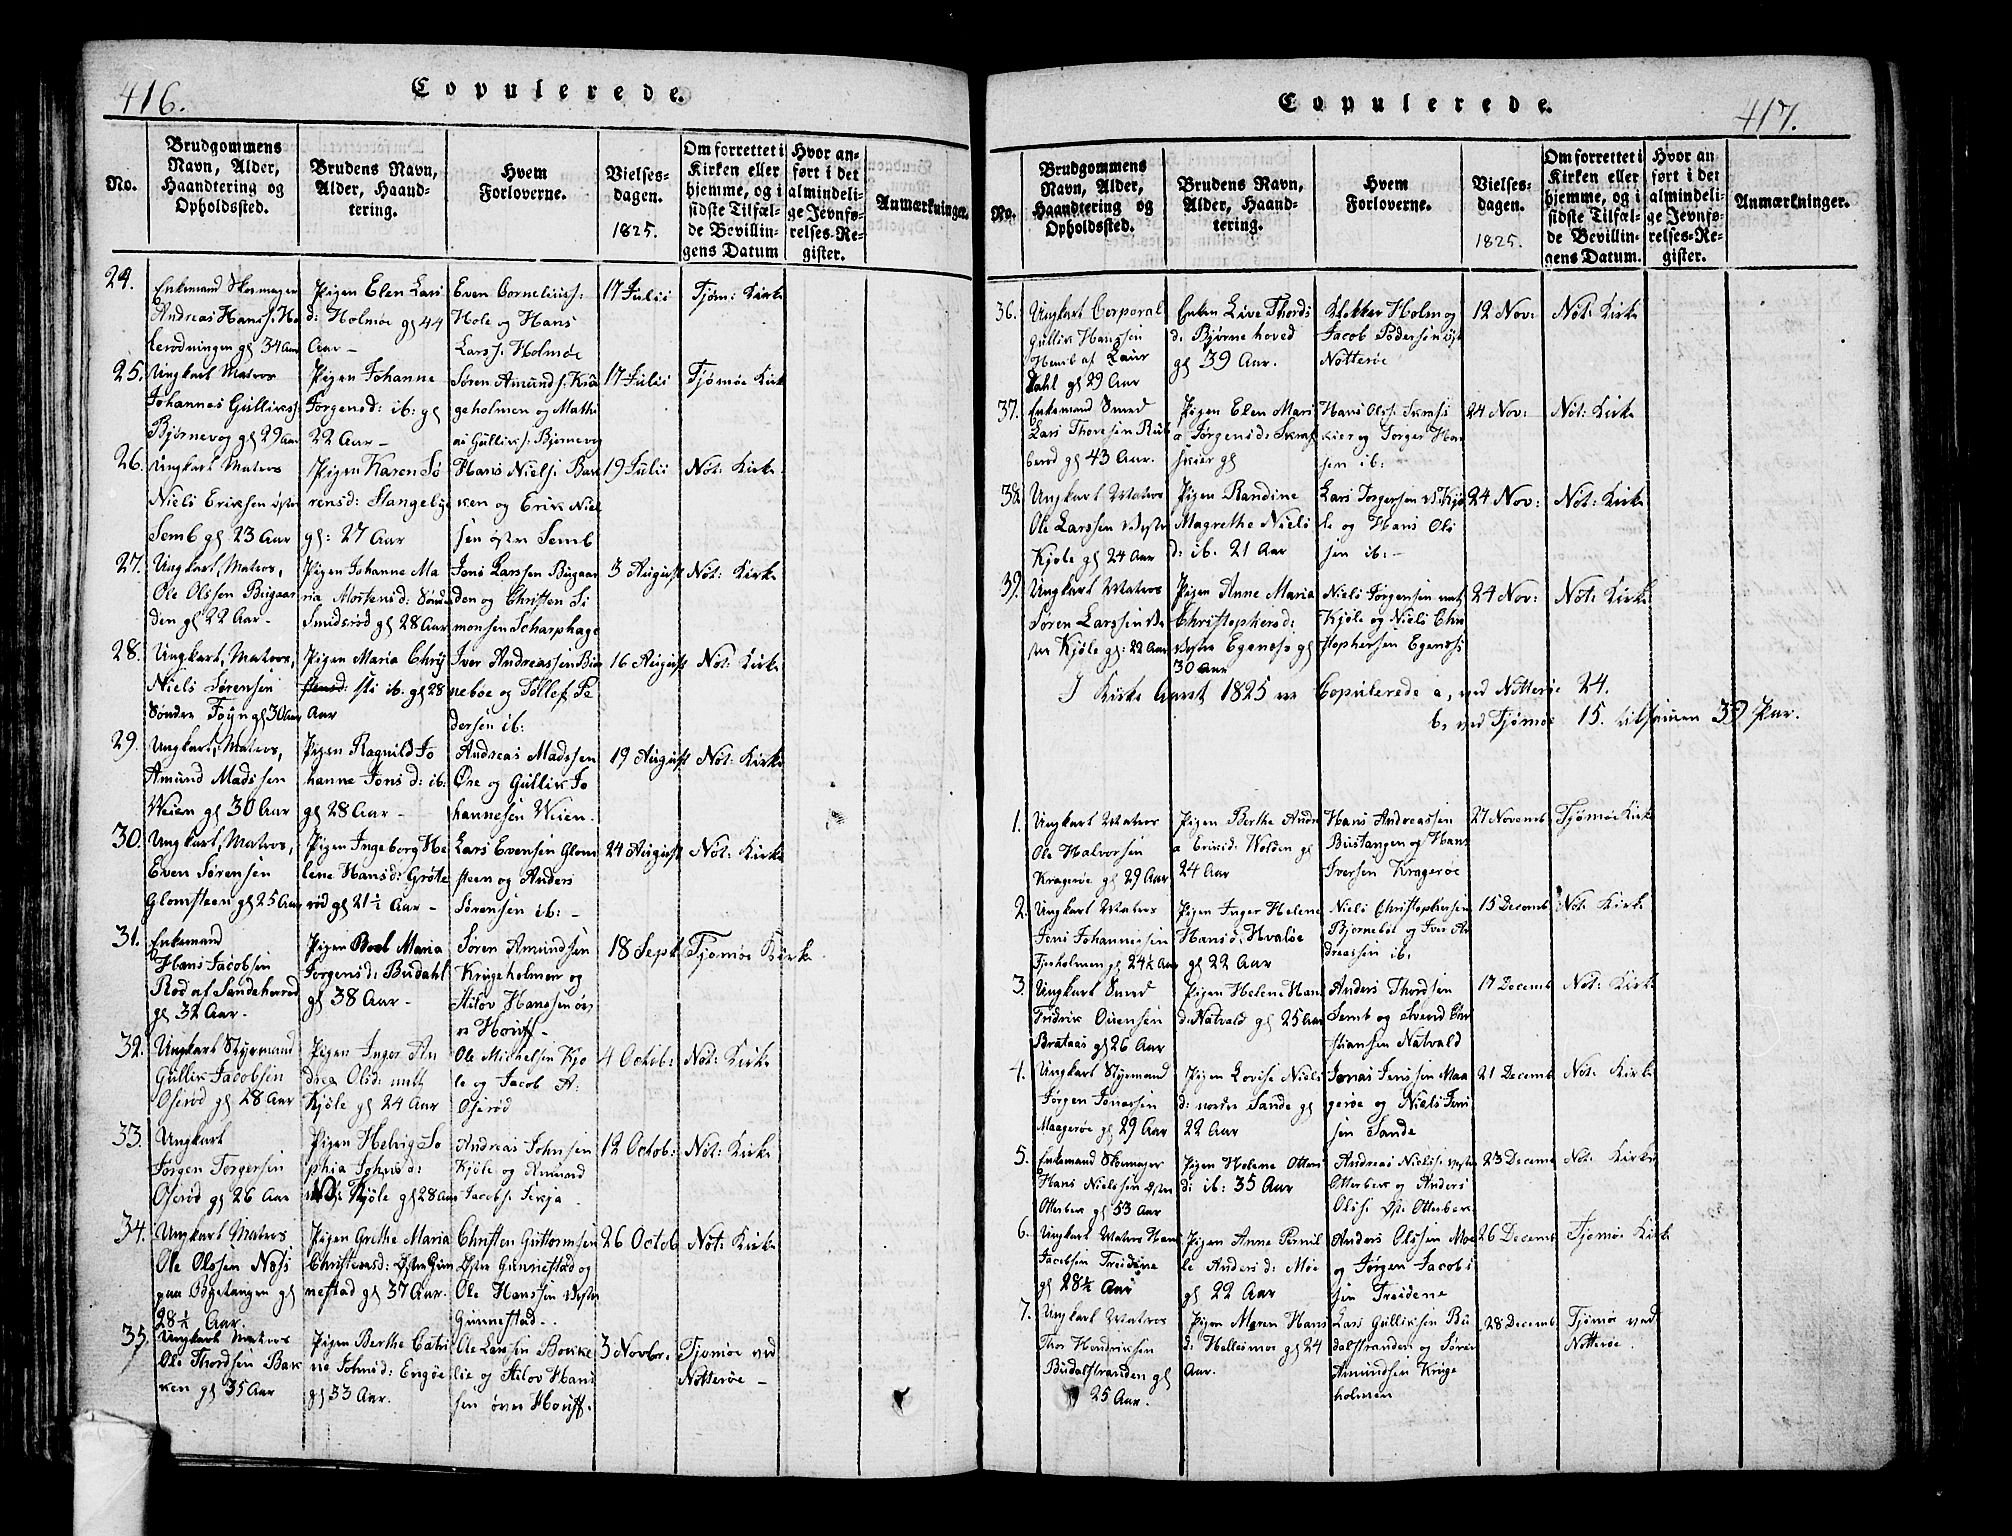 416.
Copulerede.
No.
Brudgommens Navn, Alder, Haandtering og Opholdssted.
Brudens Navn, Alder, Haandtering.
Hvem Forloverne.
Vielsesdagen. 1825.
Om forrettet i Kirken eller hjemme, og i sidste Tilfælde Bevillingens Datum
Hvor anført i det almindelige Jevnførelses-Register.
Anmærkninger.
24.
Enkemand Skomager
Andreas Hans: Ho
lerødningen gl 34 Aar
Pigen Elen Lars
d: Holmøe gl 44
Aar –
Even Cornelius:
Hole og Hans
Larss: Holmøe
17 Julii
Tjøm: Kirke
25.
Ungkarl Matros
Johannes Gulliks:
Bjørnevog gl 29 Aar
Pigen Johanne
Jørgensd: ib: gl
22 Aar –
Søren Amunds: Krü
geholmen og Mathi
as Gulliks: Bjørnevog
17 Julii
Tjømøe Kirk
26.
Ungkarl Matros
Niels Eriksen østre
Semb gl 23 Aar
Pigen Karen Sø
rensd: Stangeby
gl: 27 Aar
Hans Niels: Bak
ken og Erik Niel
sen østre Semb
19 Julii
Nøt: Kirke
27.
Ungkarl, Matros,
Ole Olssen Bugaar
den gl 22 Aar –
Pigen Johanne Ma
ria Mortensd: Søndre
Smidsrød gl 28 Aar
Jens Larssen Bugaar
den og Christen Si
monsen Scharphage
3 August
Nøt: Kirke
28.
Ungkarl, Matros,
Niels Sørensen
Søndre Føyn gl 30 Aar
Pigen Maria Chry
sti ib. gl 28
Aar
Iver Andreassen Biø
neboe og Tollef Pe
dersen ib:
16 August
Nøt: Kirke
29.
Ungkarl, Matros,
Amund Madssen
Weien gl 30 Aar
Pigen Ragnild Jo
hanne Jensd: ib:
gl 28 Aar –
Andreas Madssen
Øre og Gullik Jo
hannesen Weien.
19 August
Nøt: Kirke
30.
Ungkarl, Matros,
Even Sørensen
Glomsteen gl 25 Aar
Pigen Ingeborg He
lene Hansd: Grøte
rød gl 21½ Aar –
Lars Evensen Glom
steen og Anders
Sørensen ib: –
24 August
Nøt: Kirke
31.
Enkemand
Hans Jacobsen
Rød af Sandeherred
gl 32 Aar.
Pigen Boel Maria
Jørgensd: Budahl
gl 38 Aar –
Søren Amundsen
Krügeholmen og
Stilov Hanssen øv
re Houff –
18 Sept
Tjømøe Kirke
32.
Ungkarl Styrmand
Gullik Jacobsen
Oserød gl 28 Aar
Pigen Inger An
drea Olsd: mitt
Kjøle gl 24 Aar
Ole Michelsen Kjø
le og Jacob A:
Oserød
4 Octob:
Nøt: Kirke
33.
Ungkarl
Jørgen Torgersen
Oserød gl 26 Aar
Pigen Helvig So
phia Johnsd:
Kjøle gl 28 Aar
Andreas Johnsen
Kjøle og Amund
Jacobs: Fekja –
12 Octob:
Nøt: Kirke
34.
Ungkarl Matros
Ole Olssen Næss
paa Bygetangen gl
28½ Aar.
Pigen Grethe Maria
Christensd: Østre Gün
nestad gl 37 Aar.
Christen Guttormsen
Østre Gunnestad og
Ole Hanssen Vestre
Gunnestad –
26 Octob
Nøt: Kirke
35.
Ungkarl Matros
Ole Thordsen Bak
ken gl 35 Aar
Pigen Berthe Cathi
rine Johnsd: Engøe
gl 33 Aar.
Ole Larssen Borike
lie og Stilov Hans
sen øvre Houff.
3 Novbr.
Tjømøe ved
Nøtterøe –
Copulerede.
417.
No.
Brudgommens Navn, Alder, Haandtering og Opholdssted.
Brudens Navn, Alder, Haandtering.
Hvem Forloverne.
Vielsesdagen. 1825.
Om forrettet i Kirken eller hjemme, og i sidste Tilfælde Bevillingens Datum.
Hvor anført i det almindelige Jevnførelses-Register.
Anmærkninger.
36.
Ungkarl Corporal
Gullik Hanssen
Hemb af Laur
dahl gl 29 Aar
Enken Live Thords
d: Bjørnehoved
gl 39 Aar.
Klokker Holm og
Jacob Pedersen øst
Nøtterøe
12 Nov:
Nøt: Kirke
37.
Enkemand Smed
Lars Thoresen Rub
berød gl 43 Aar.
Pigen Elen Mari
a Jørgensd: Skraf
skier gl
Hans Ols: Skrafs
kier og Torger Han
sen ib:
24 Nov:
Nøt: Kirke
38.
Ungkarl Matros
Ole Larssen Vestre
Kjøle gl 24 Aar
Pigen Randine
Magrethe Niels
d: ib. 21 Aar
Lars Torgersen V: Kjø
le og Hans Ols
sen ib: –
24 Nov:
Nøt: Kirke
39.
Ungkarl Matros
Søren Larssen Ve
stre Kjøle gl: 22 Aar
Pigen Anne Maria
Christophersd:
Vestre Egenæss gl
30 Aar
Niels Jørgensen mitt
Kjøle og Niels Chri
stophersen Egenæss
24 Nov:
Nøt: Kirke
I Kirke Aaret 1825 er Copulerede a, ved Nøtterøe 24.
b, ved Tjømøe 15. tilsamen 39 Par.
1.
Ungkarl Matros
Ole Halvorsen
Kragerøe gl 29 Aar
Pigen Berthe Andre
a Eriksd: Wolden gl
24 Aar
Hans Andreassen
Bustangen og Hans
Iversen Kragerøe
27 Novemb
Tjømøe Kirke
2.
Ungkarl Matros
Jens Johannessen
Fjerholmen gl 24½ Aar
Pigen Inger Helene
Hansd: Hvaløe
gl 22 Aar
Niels Christophersen
Bjørneboe og Iver An
dreassen ib.
15 Decemb
Nøt: Kirke
3.
Ungkarl Smed
Fridrik Ouensen
Brataas gl 26 Aar
Pigen Helene Hans
d: Natvald gl 25 Aar
Anders Thordsen
Semb og Svend Chri
stiansen Natvald
17 Decemb
Nøt: Kirke
4.
Ungkarl Styrmand
Jørgen Jonassen
Maagerøe gl 29 Aar
Pigen Lovise Niels
d: nordre Sande gl
22 Aar
Jonas Jenssen Maa
gerøe og Niels Jens
sen Sande
21 Decemb
Nøt: Kirke
5.
Enkemand Skomager
Hans Nielssen østre
Otterbek gl 53 Aar
Pigen Helene Otters
d: ib: 35 Aar
Andreas Niels: vestre
Otterbek og Anders
Olss: Øst: Otterbek
23 Decemb
Nøt: Kirke
6.
Ungkarl Matros Hans
Jacobsen Treidene
gl 28½ Aar
Pigen Anne Pernil
le Andersd: Møe
gl 22 Aar
Anders Olssen Møe
og Jørgen Jacobs
sen Treidene
26 Decemb
Tjømøe Kirke
7.
Ungkarl Matros
Thor Hendriksen
Budalsstranden gl
25 Aar.
Pigen Maren Hans
d: Hellesmoe gl 24
Aar.
Lars Gulliksen Bu
dalstranden og Søren
Amundsen Krüge
holmen
28 Decemb
Tjømøe ved
Nøtterøe.